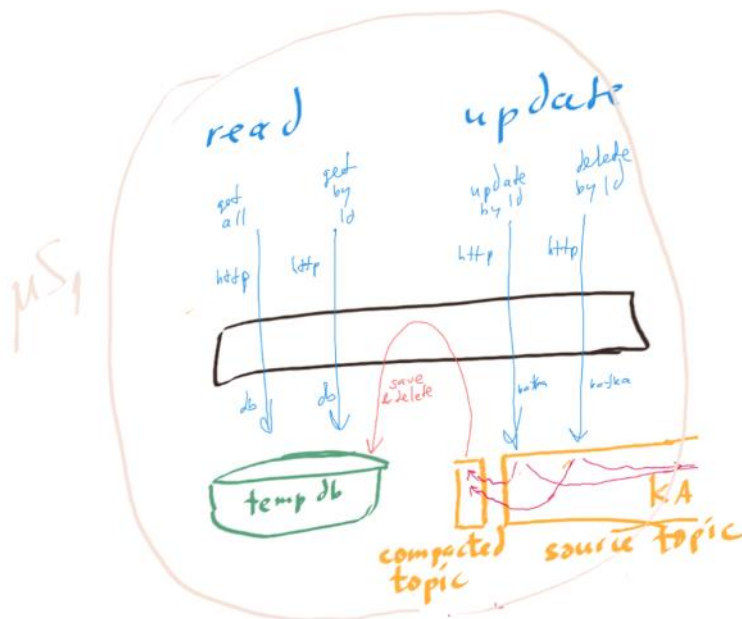 read
update
get
all
get
by
Id
update
by Id
delete
by Id
http
http
http
http
save
&delete
db
db
kafka
kafka
temp db
KA
compacted
topic
source topic
μS1